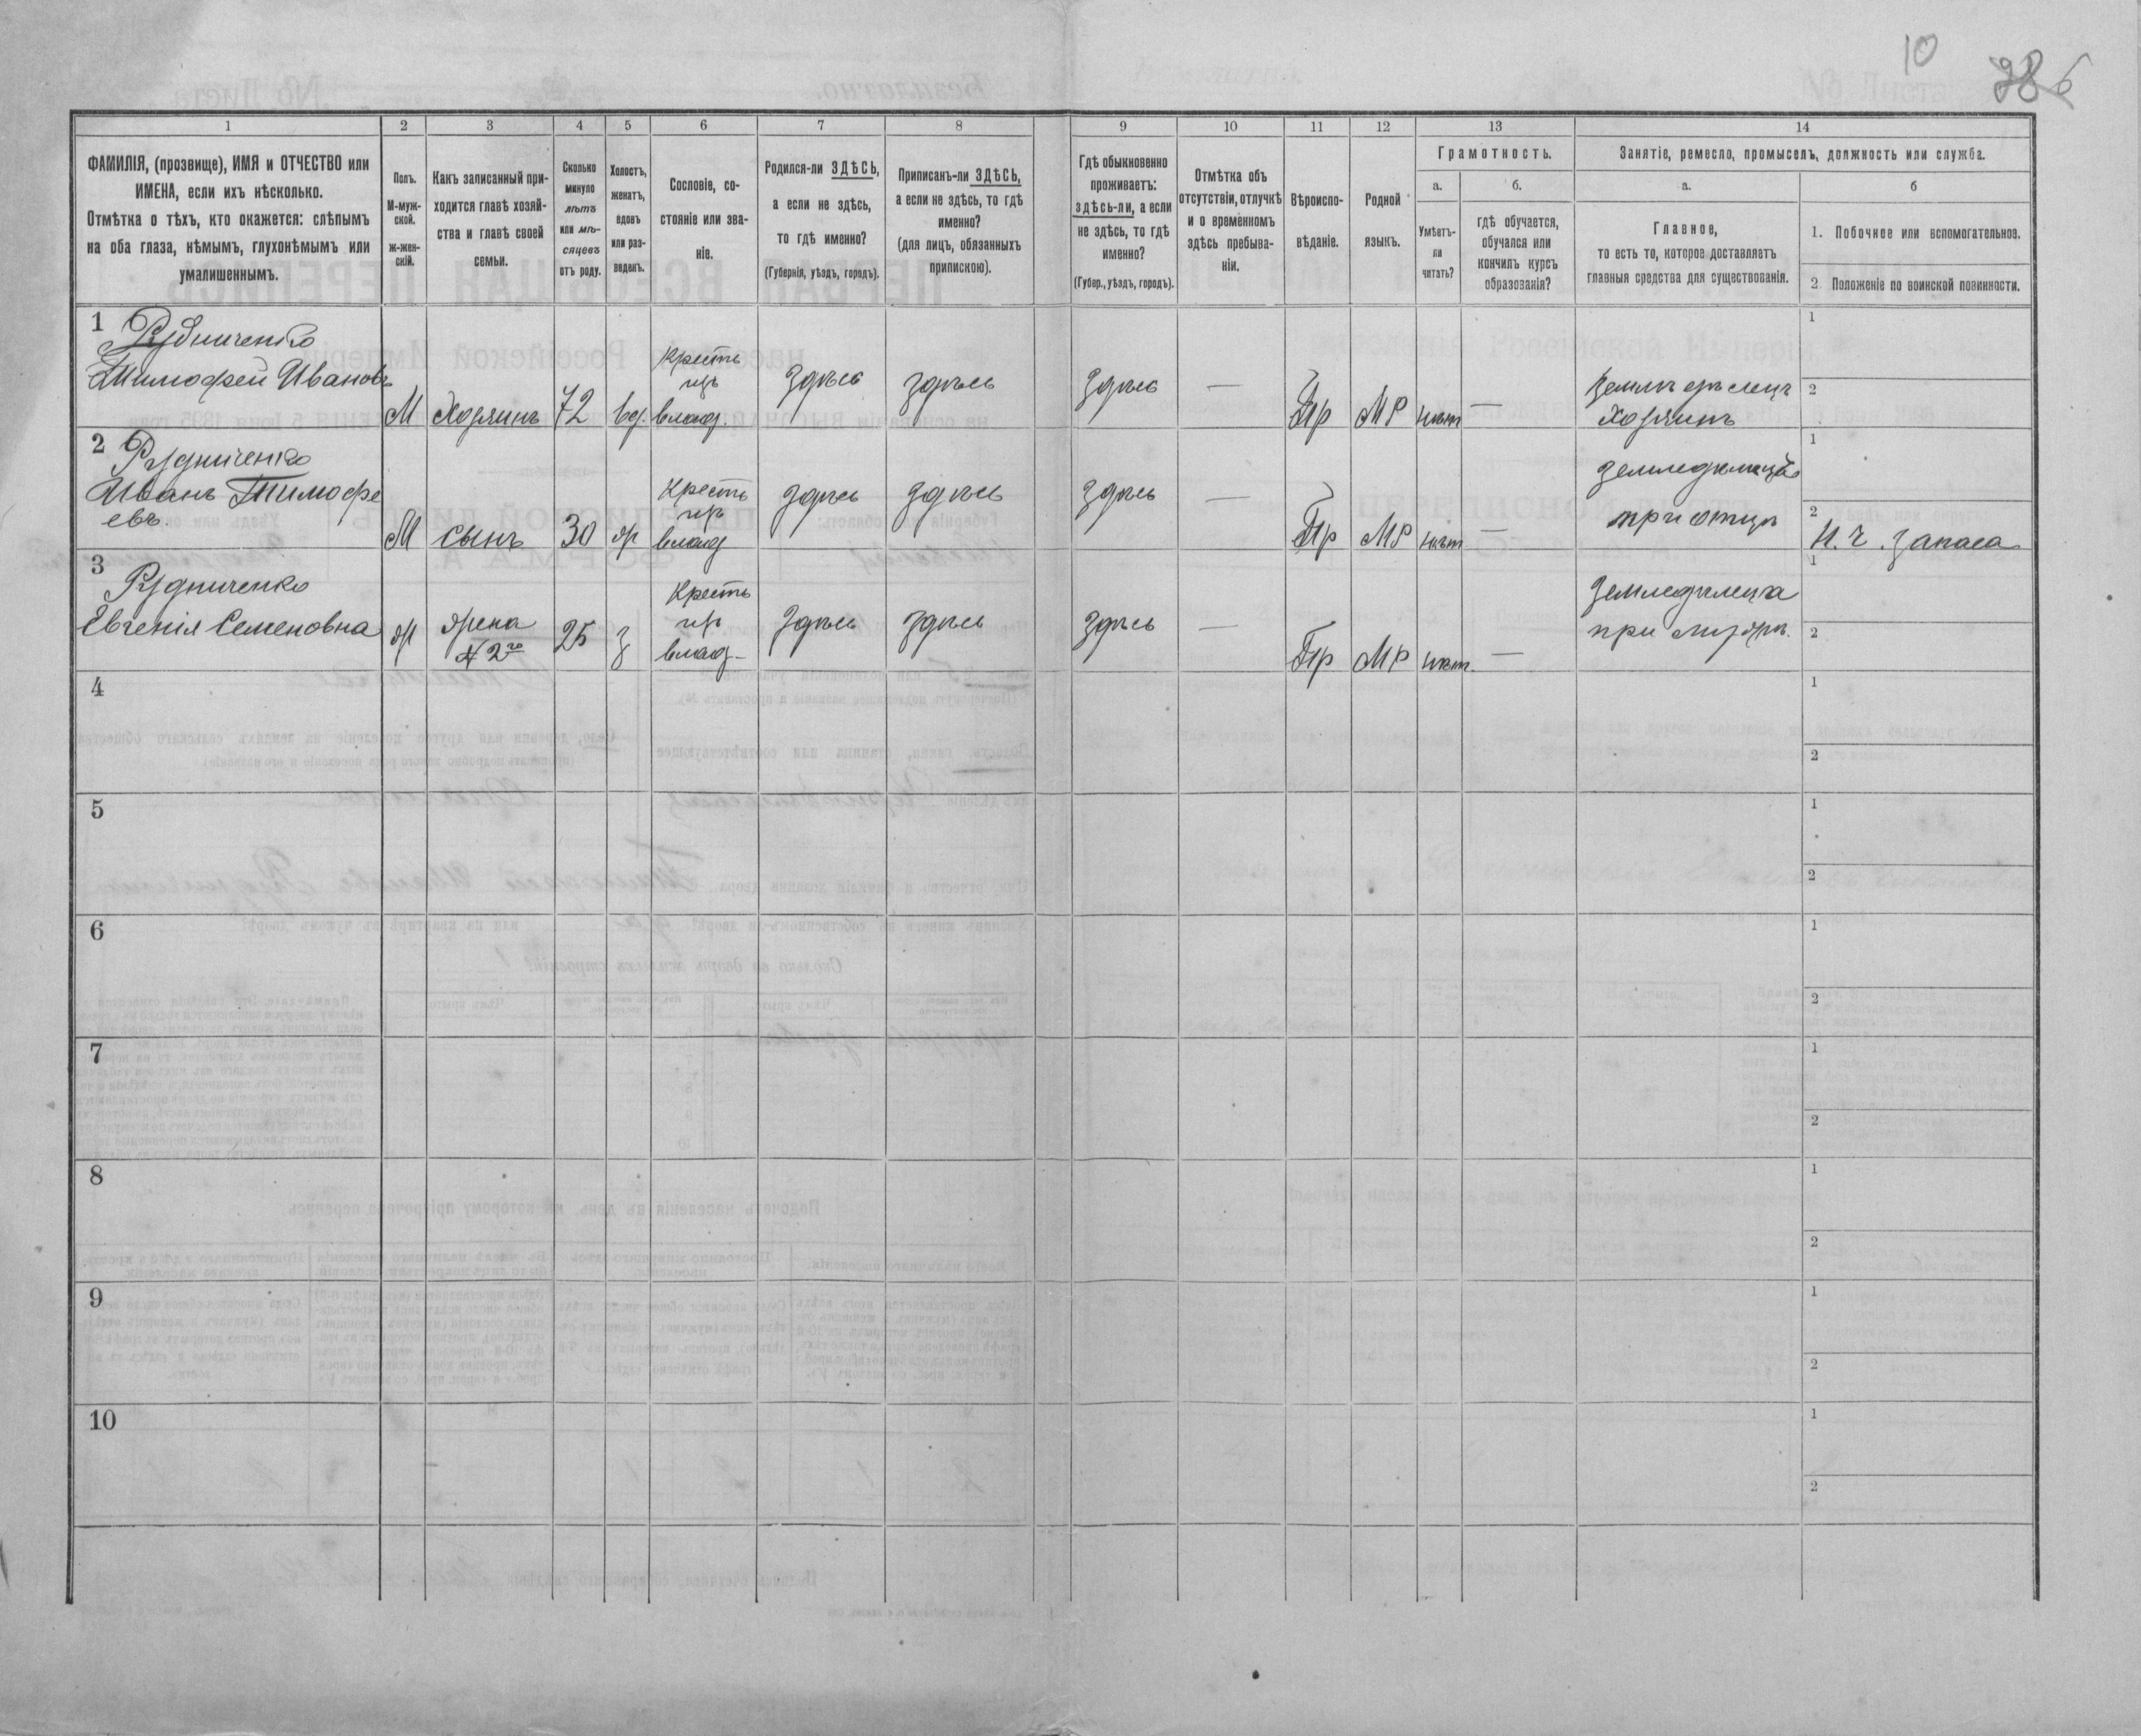 10
1
2
3
4
5
6
7
8
9
10
11
12
13
14
ФАМИЛІЯ, (прозвище), ИМЯ и ОТЧЕСТВО или
ИМЕНА, если ихъ нѣсколько.
Отмѣтка о тѣхъ, кто окажется: слѣпымъ
на оба глаза, нѣмымъ, глухонѣмымъ или
умалишеннымъ.
Полъ.
М-муж-
ской.
ж-жен-
скій.
Какъ записанный при-
ходится главѣ хозяй-
ства и главѣ своей
семьи.
Сколько
минуло
лѣтъ
или мѣ-
сяцевъ
отъ роду.
Холостъ,
женатъ,
вдовъ
или раз-
веденъ.
Сословіе, со-
стояніе или зва-
ніе.
Родился-ли ЗДѢСЬ,
а если не здѣсь,
то гдѣ именно?
(Губернія, уѣздъ, городъ).
Приписанъ-ли ЗДѢСЬ,
а если не здѣсь, то гдѣ
именно?
(для лицъ, обязанныхъ
припискою).
Гдѣ обыкновенно
проживаетъ:
здѣсь-ли, а если
не здѣсь, то гдѣ
именно?
(Губер., уѣздъ, городъ).
Отмѣтка объ
отсутствіи, отлучкѣ
и о временномъ
здѣсь пребыва-
ніи.
Вѣроиспо-
вѣданіе.
Родной
языкъ.
Грамотность.
а.
Умѣетъ-
ли
читать?
б.
гдѣ обучается,
обучался или
кончилъ курсъ
образованія?
Занятіе, ремесло, промыселъ, должность или служба.
а.
Главное,
то есть то, которое доставляетъ
главныя средства для существованія.
б
1. Побочное или вспомогательное.
2. Положеніе по воинской повинности.
1
Рудниченко
Тимофей Ивановъ
М
Хозяинъ
72
вд.
Кресть
изъ
влад.
здѣсь
здѣсь
здѣсь
—
Пр
МР
нѣтъ
—
Землѣдѣлецъ
Хозяинъ
1
2
2
Рудниченко
Иванъ Тимофе
евъ.
М
сынъ
30
ж
Кресть
изъ
влад
здѣсь
здѣсь
здѣсь
—
Пр
МР
нѣтъ
—
земледѣлецъ
при отцѣ
1
2
Н. Ч. запаса
3
Рудниченко
Евгенія Семеновна
ж
жена
№ 2го
25
з
Кресть
изъ
влад
здѣсь
здѣсь
здѣсь
—
Пр
МР
нѣтъ.
—
Земледѣлица
при мужѣ.
1
2
4
1
2
5
1
2
6
1
2
7
1
2
8
1
2
9
1
2
10
1
2